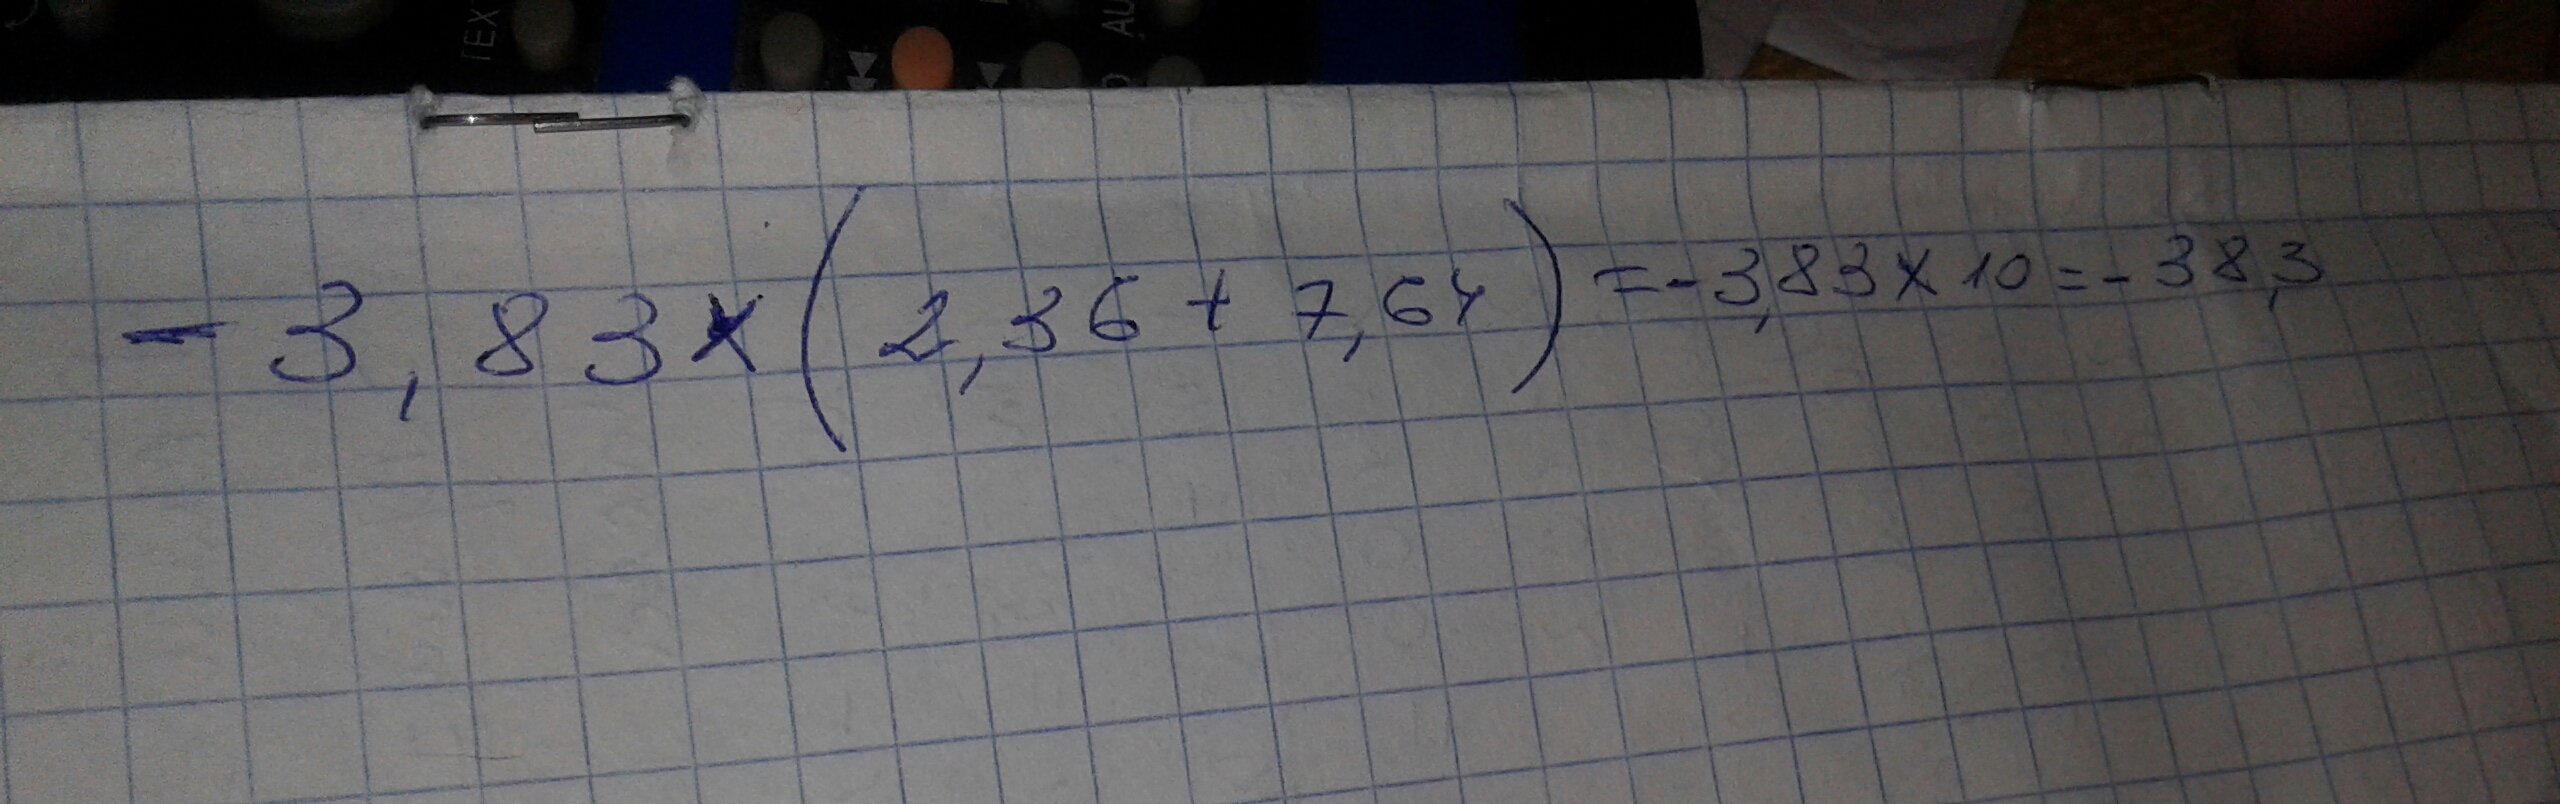 TEX
AU
- 3,83 x (2,36 + 7,64) = - 3,83 x 10 = - 38,3